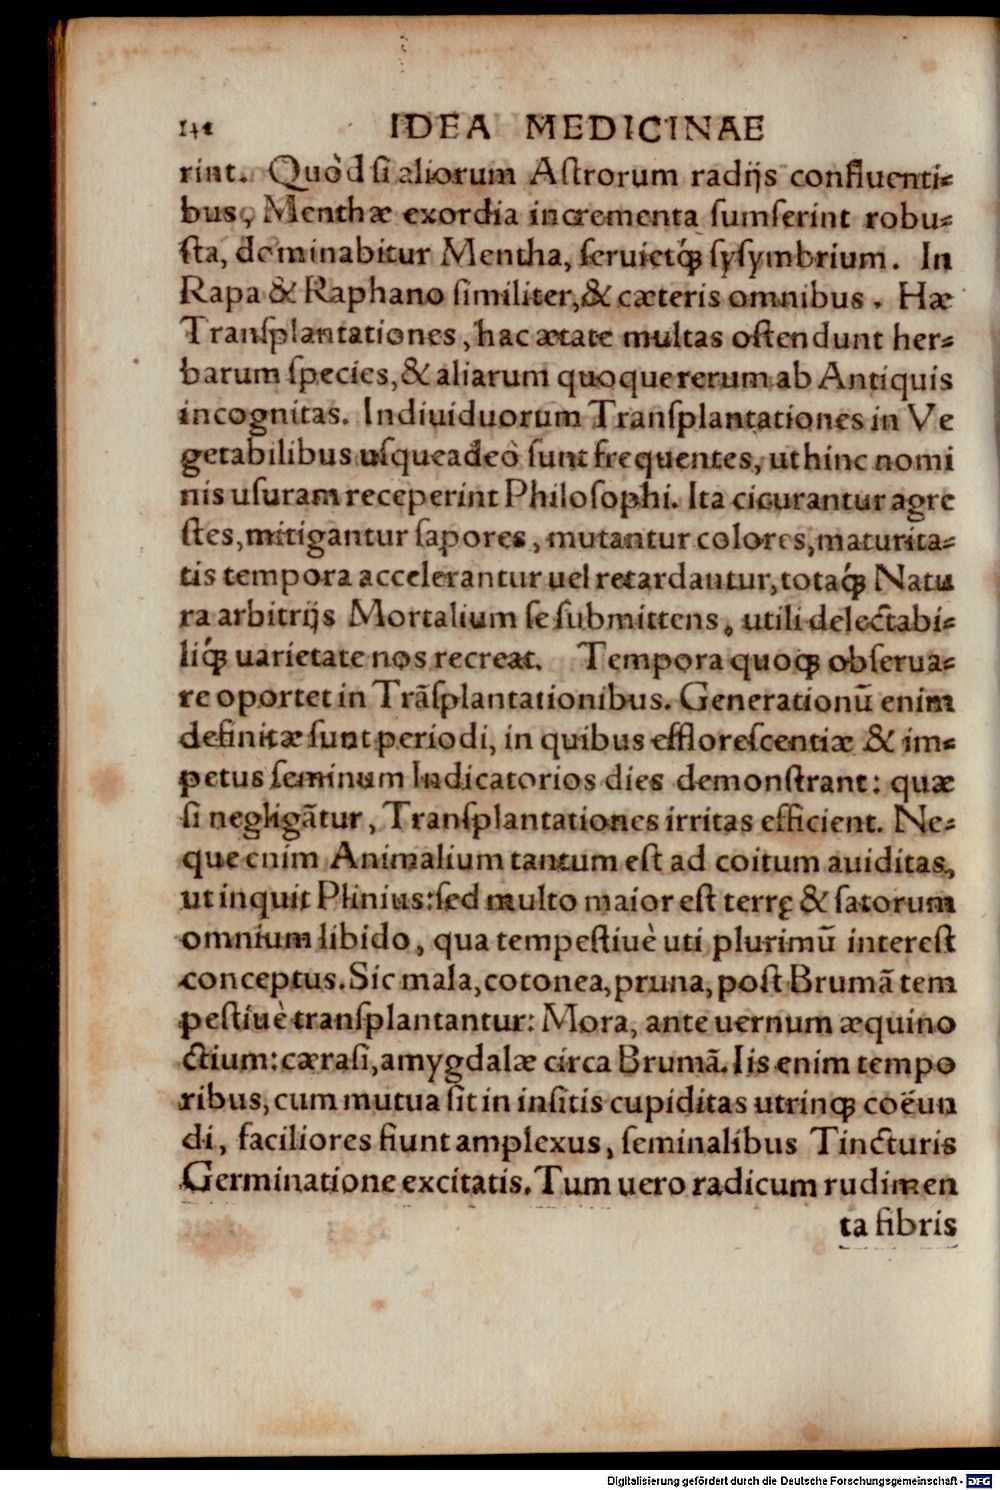 142 IDEA MEDICINAE
rint. Quòd ſi aliorum Aſtrorum radijs confluenti⸗
bus, Menthæ exordia incrementa ſumſerint robu⸗
ſta, dominabitur Mentha, ſeruietq́ꝫ ſyſymbrium. In
Rapa & Raphano ſimiliter, & cæteris omnibus. Hæ
Tranſplantationes, hac ætate multas oſtendunt her⸗
barum ſpecies, & aliarum quoque rerum ab Antiquis
incognitas. Indiuiduorum Tranſplantationes in Ve
getabilibus uſqueadeò ſunt frequentes, ut hinc nomi
nis uſuram receperint Philoſophi. Ita cicurantur agre
ſtes, mitigantur ſapores, mutantur colores, maturita⸗
tis tempora accelerantur uel retardantur, totaq́ꝫ Natu
ra arbitrijs Mortalium ſe ſubmittens, utili delectabi⸗
liq́ꝫ uarietate nos recreat. Tempora quoqꝫ obſerua⸗
re oportet in Trãſplantationibus. Generationũ enim
definitæ ſunt periodi, in quibus effloreſcentiæ & im⸗
petus ſeminum Indicatorios dies demonſtrant: quæ
ſi negligãtur, Tranſplantationes irritas efficient. Ne⸗
que enim Animalium tantum eſt ad coitum auiditas,
ut inquit Plinius: ſed multo maior eſt terrę & ſatorum
omnium libido, qua tempeſtiuè uti plurimũ intereſt
conceptus. Sic mala, cotonea, pruna, poſt Brumã tem
peſtiuè tranſplantantur: Mora, ante uernum æquino
ctium: cæraſi, amygdalæ circa Brumã. Iis enim tempo
ribus, cum mutua ſit in inſitis cupiditas utrinqꝫ coëun
di, faciliores fiunt amplexus, ſeminalibus Tincturis
Germinatione excitatis. Tum uero radicum rudimen
ta fibris
Digitalisierung gefördert durch die Deutsche Forschungsgemeinschaft - DFG